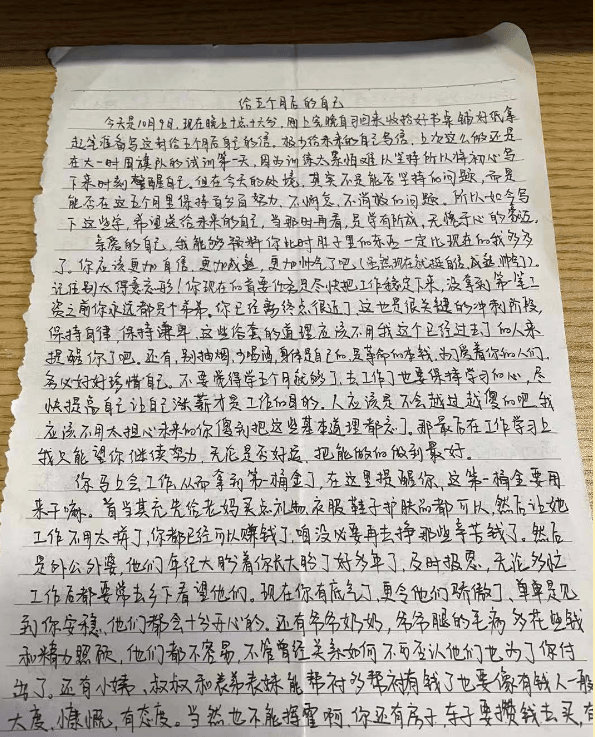 给五个月后的自己
今天是10月9日,现在晚上十点十六分,刚上完晚自习回来收拾好书桌铺好纸拿
起笔准备写这封给五个月后自己的信。很少给未来的自己写信,上次这么做还是
在大一时国旗队的试训第一天,因为训练太累怕难以坚持所以将初心写
下来时刻警醒自己。但在今天的处境,其实不是能否坚持的问题,而是
能否在这五个月里保持百分百努力、不懈怠、不消极的问题。所以如今写
下这些字,希望送给未来的自己,当那时再看,是学有所成,无愧于心的
亲爱的自己,我能够预料你此时肚子里的东西一定比现在的我多多
了,你应该更加自信,更加成熟,更加帅气了吧(虽然现在就挺自信,成熟,帅气)。
记住别太得意忘形!你现在的首要任务是尽快把工作稳定下来,没拿到第一笔工
资之前你永远都是个弟弟。你已经离终点很近了,这也是很关键的冲刺阶段,
保持自律,保持谦卑,这些俗套的道理应该不用我这个已经过去了的人来
提醒你了吧,还有,别抽烟,少喝酒,身体是自己的,是革命的本钱,为了爱着你的人们,
务必好好珍惜自己。不要觉得学五个月就够了,去工作了也要保持学习的心,尽
快提高自己让自己涨薪才是工作的目的。人应该是不会越过越傻的吧,我
应该不用太担心未来的你傻到把这些基本道理都忘了。那最后在工作学习上
我只能望你继续努力,无论是否好运,把能做的做到最好。
你马上会工作,从而拿到第一桶金了,在这里提醒你,这第一桶金要用
来干嘛。首当其充先给老妈买点礼物,衣服鞋子护肤品都可以,然后让她
工作不用太拼了,你都已经可以赚钱了,咱没必要再去挣那些辛苦钱了。然后
是外公外婆,他们年纪大盼着你长大盼了好多年了,及时报恩,无论多忙
工作后都要常去乡下看望他们。现在你有底气了,更令他们骄傲了,单单是见
到你安稳,他们都会十分开心的。还有爷爷奶奶,爷爷腿的毛病多花些钱
和精力照顾,他们都不容易,不管曾经关系如何不可否认他们也为了你付
出了。还有小姨,叔叔和表弟表妹能帮衬多帮衬,有钱了也要像有钱人一般
大度,慷慨,有态度。当然也不能挥霍啊,你还有房子,车子要攒钱去买,有